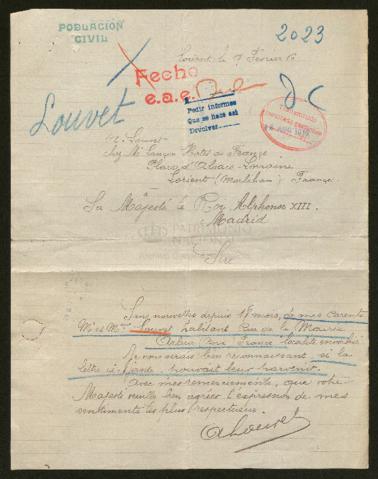 POBLACIÓN
CIVIL
2023
Lorient, le 7 Février
Fecho
e.a.e.
Louvet
Pedir informes
Que se hace así
Devolver
Mr Louvet
chez Mr Hôtel de France
Place d'Alsace-Lorraine
Lorient (Morbihan) France
Sa Majesté le Roy Alphonse XIII.
Madrid
PATRIMONIO
NACIONAL
Sire
Sans nouvelles depuis 18 mois, de mes parents
Mr et Mme Louvet habitant Rue de la Mairie
France localité envahie
Je vous serais bien reconnaissant, si la
lettre ci-jointe, pouvait leur parvenir.
Avec mes remerciements, que votre
Majesté veuille bien agréer l'expression de mes
sentiments les plus respectueux.
ALouvet